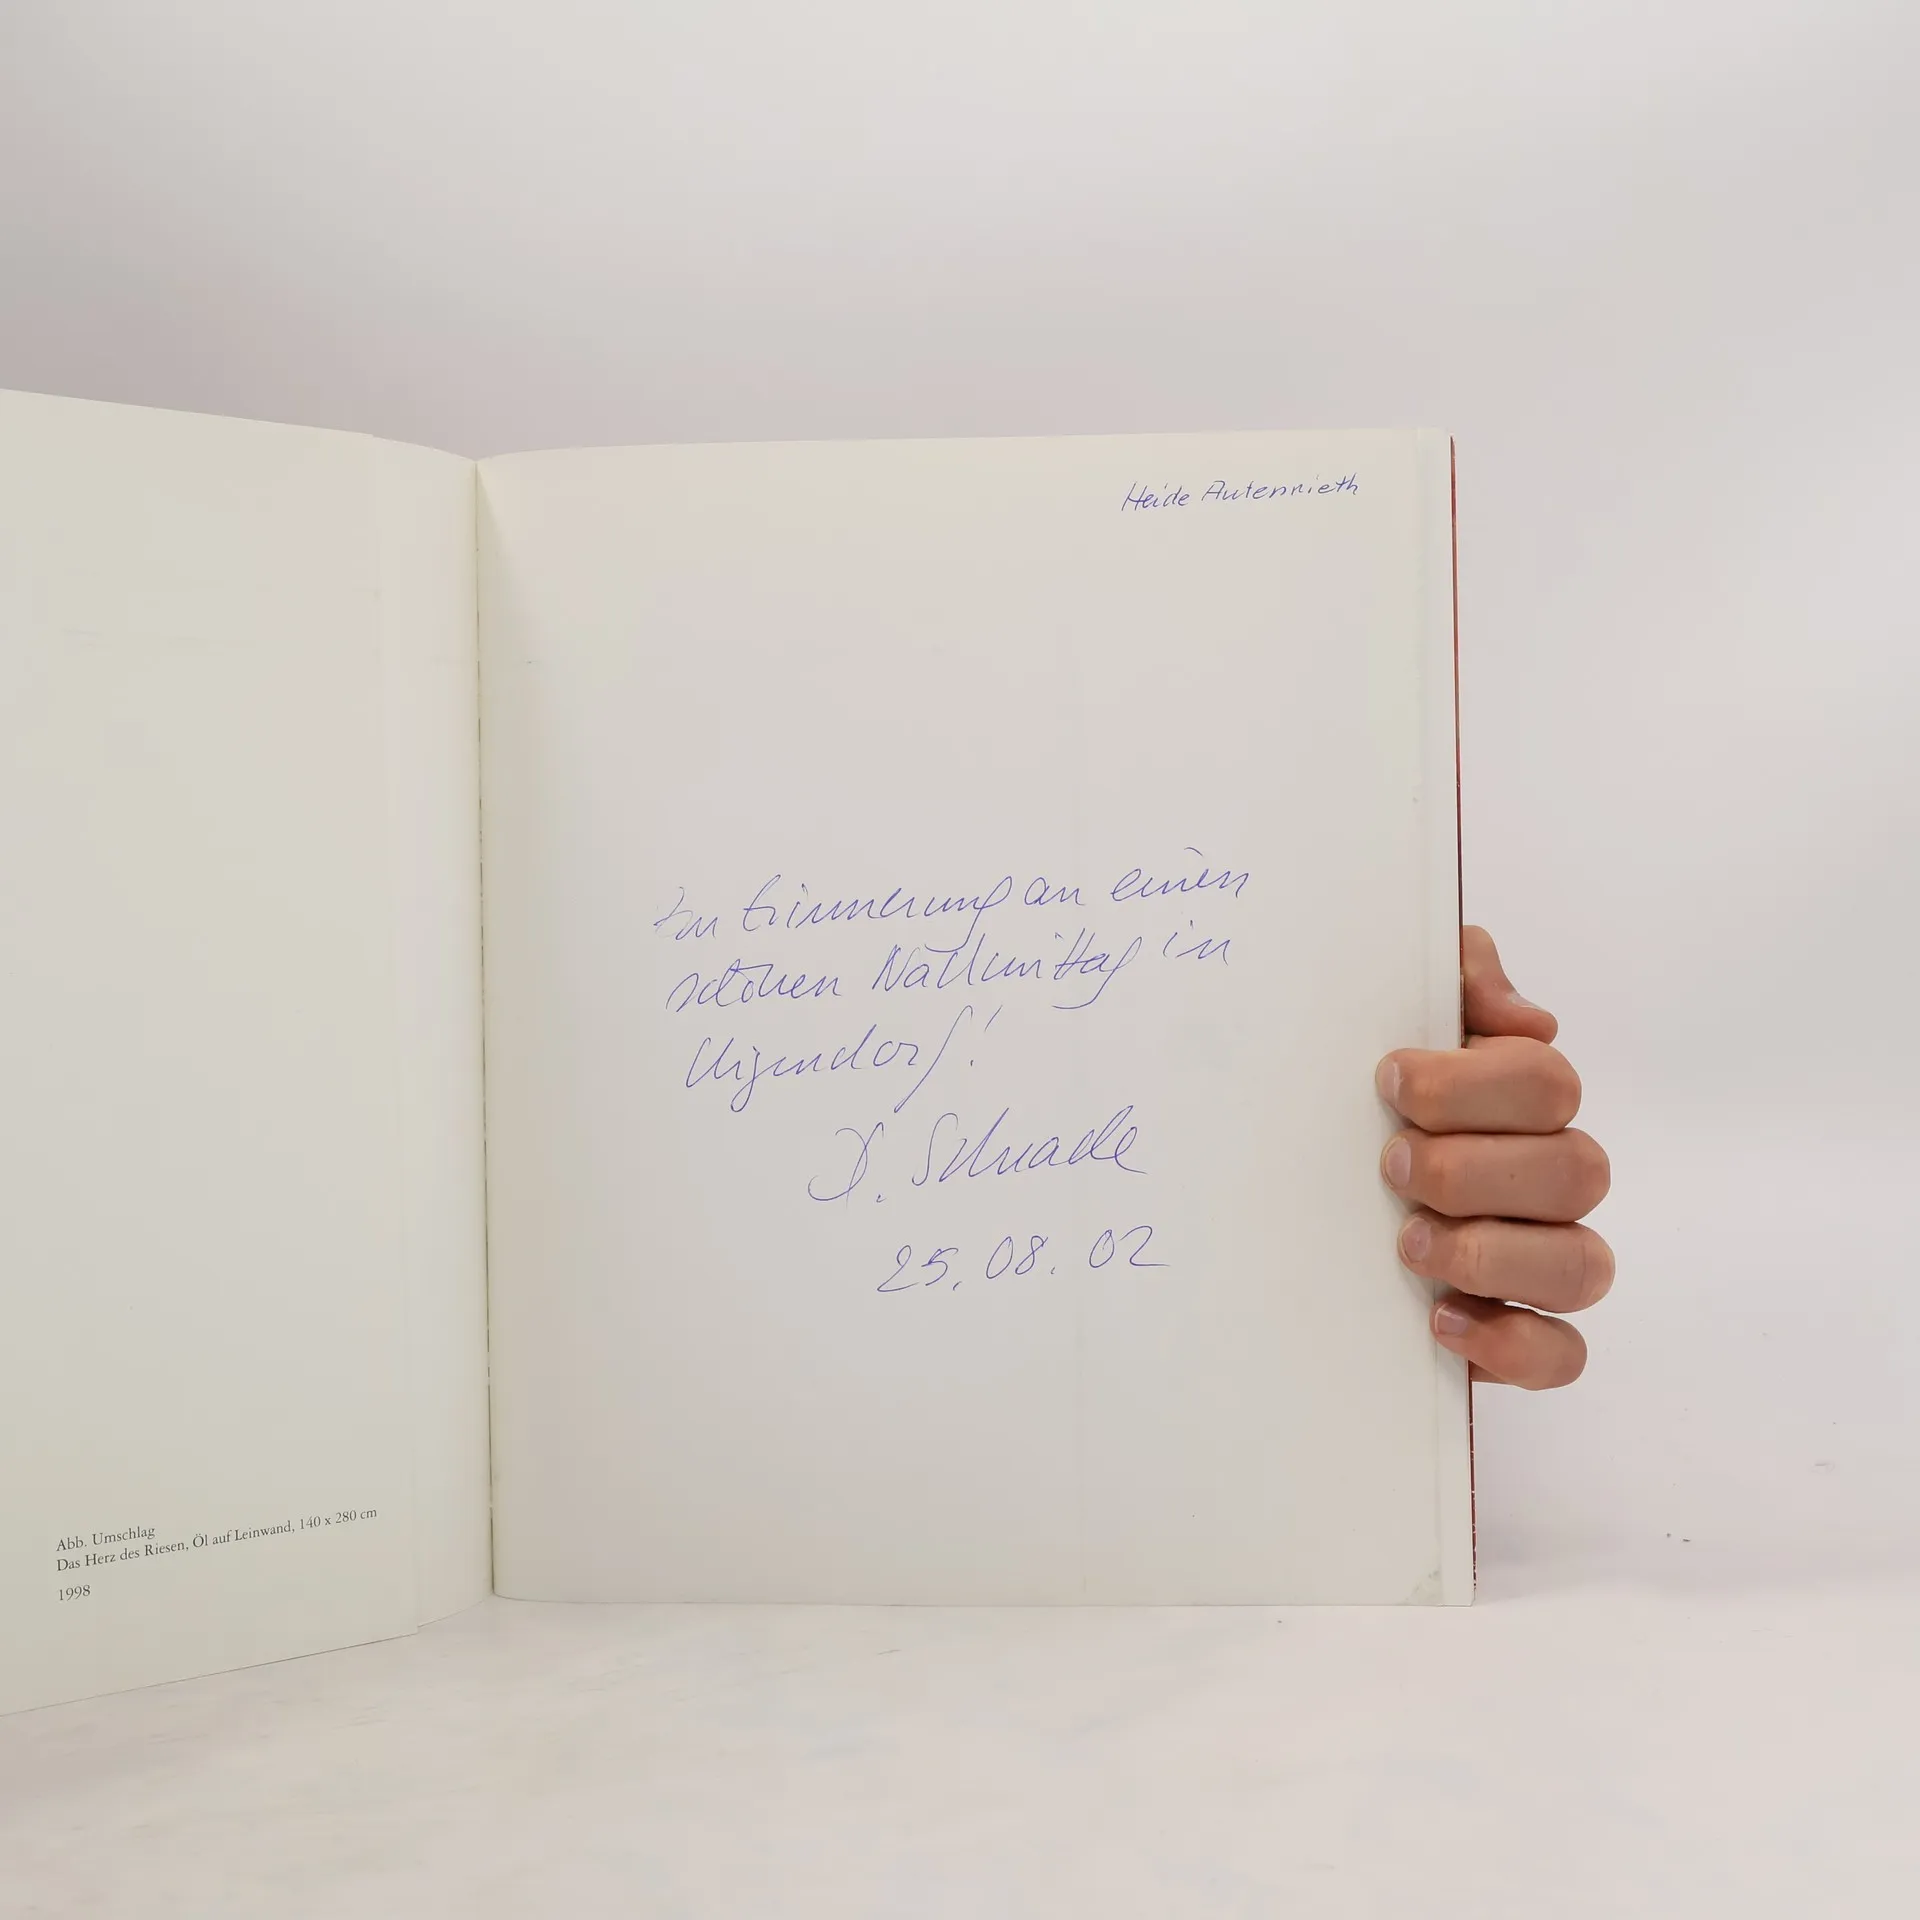 Abb. Umschlag
Das Herz des Riesen, Öl auf Leinwand, 140 x 280 cm
1998
Heide Autenrieth
Zur Erinnerung an einen
schönen Nachmittag in
D. Schade
25.08.02